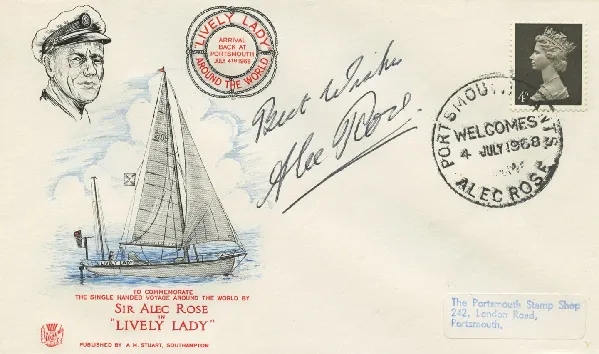 "LIVELY LADY"
ARRIVAL
BACK AT
PORTSMOUTH
JULY 4TH 1968
AROUND THE WORLD
Best Wishes
Alec Rose.
4D
PORTSMOUTH
WELCOMES
4 JULY 1968
ALEC ROSE
LIVELY LADY
TO COMMEMORATE
THE SINGLE HANDED VOYAGE AROUND THE WORLD BY
SIR ALEC ROSE
IN
"LIVELY LADY"
PUBLISHED BY A. H. STUART, SOUTHAMPTON
The Portsmouth Stamp Shop
242, London Road,
Portsmouth.